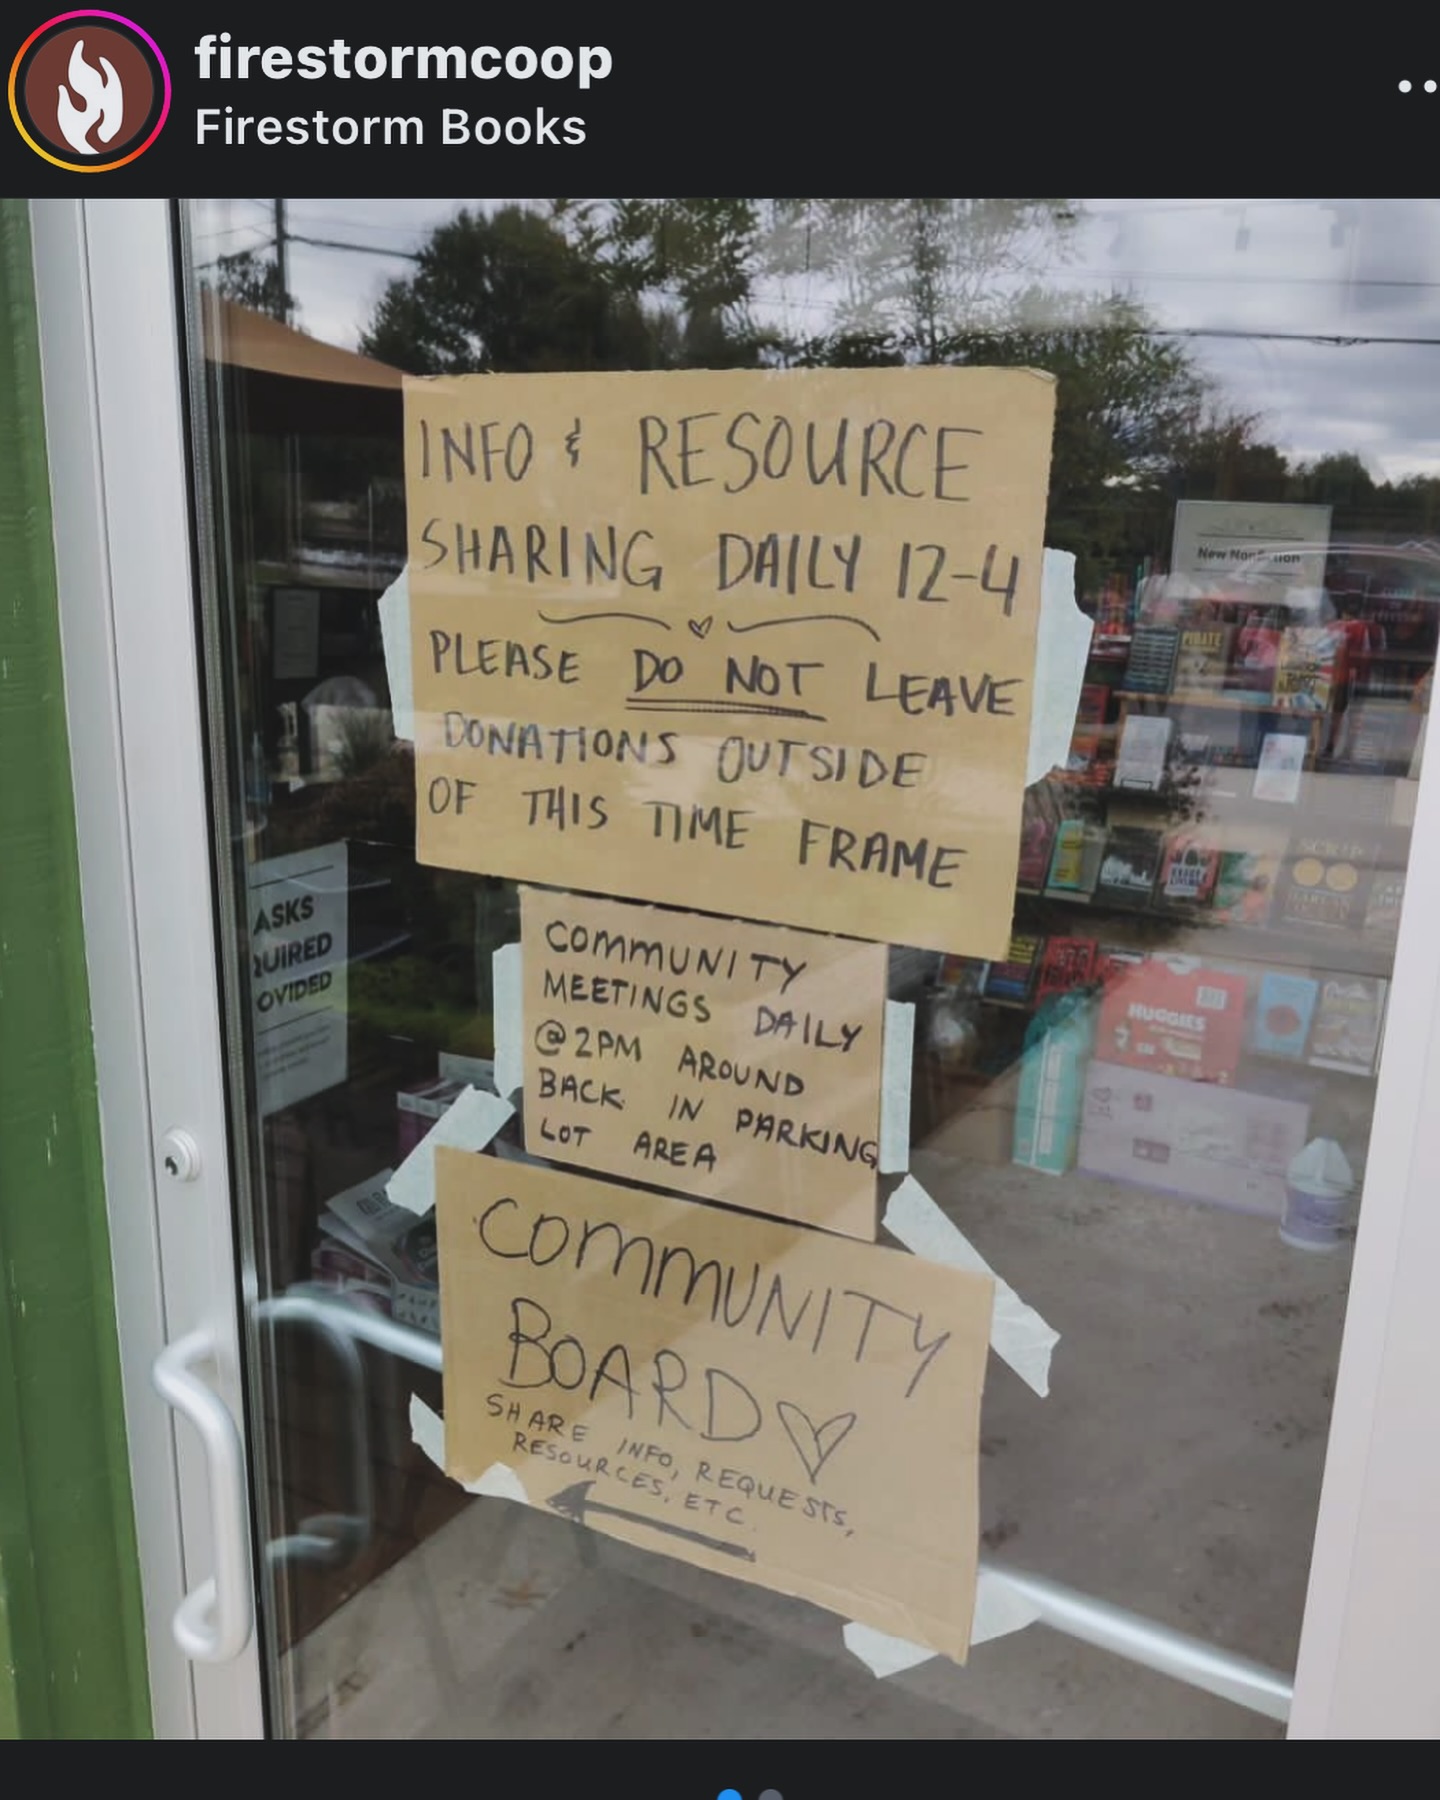 firestormcoop
Firestorm Books
INFO & RESOURCE
SHARING DAILY 12-4
PLEASE DO NOT LEAVE
DONATIONS OUTSIDE
OF THIS TIME FRAME
COMMUNITY
MEETINGS DAILY
@2PM AROUND
BACK IN PARKING
LOT AREA
COMMUNITY
BOARD
SHARE INFO, REQUESTS,
RESOURCES, ETC.
ASKS
UIRED
OVIDED
New
PIRATE
HUGGIES